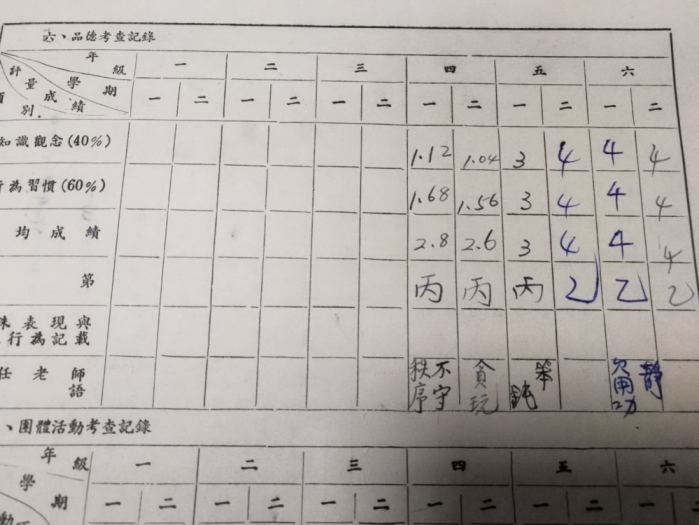 六、品德考查記錄
年 級 一 二 三 四 五 六
學 期 一 二 一 二 一 二 一 二 一 二 一 二
計量成績
別
知識觀念(40%) 1.12 1.04 3 4 4 4
行為習慣(60%) 1.68 1.56 3 4 4 4
均成績 2.8 2.6 3 4 4 4
第 丙 丙 丙 乙 乙 乙
殊表現與
行為記載
任老師
語 不守秩序 貪玩 笨鈍 欠用功 靜
、團體活動考查記錄
年 級 一 二 三 四 五 六
學 期 一 二 一 二 一 二 一 二 一 二 一
動